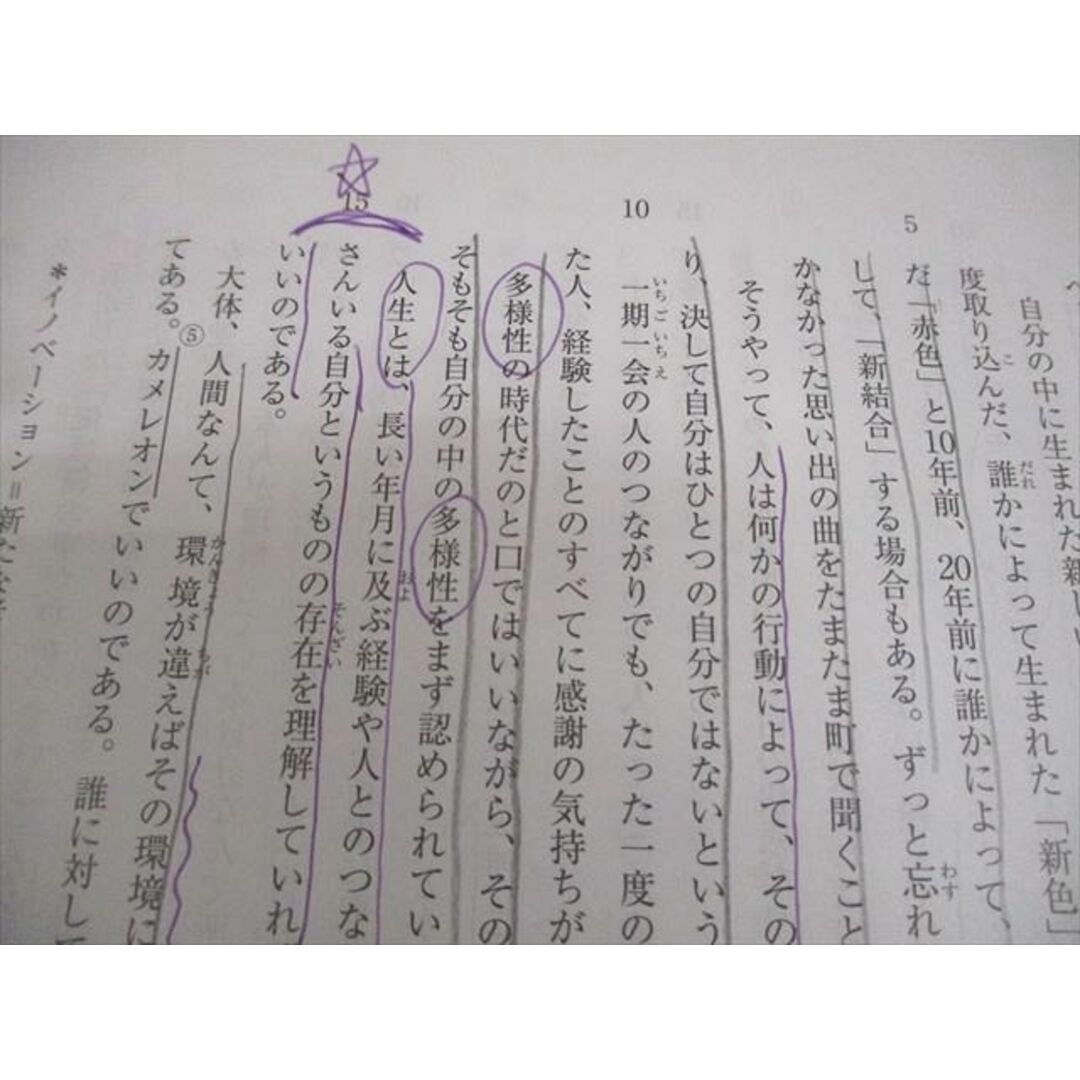 自分の中に生まれた新しい
度取り込んだ、誰かによって生まれた「新色」
だ「赤色」と10年前、20年前に誰かによって、
して、「新結合」する場合もある。ずっと忘れ
かなかった思い出の曲をたまたま町で聞くこと
そうやって、人は何かの行動によって、その
り、決して自分はひとつの自分ではないという
一期一会の人のつながりでも、たった一度の
た人、経験したことのすべてに感謝の気持ちが
多様性の時代だのと口ではいいながら、その
そもそも自分の中の多様性をまず認められてい
人生とは、長い年月に及ぶ経験や人とのつな
さんいる自分というものの存在を理解していれ
いいのである。
大体、人間なんて、環境が違えばその環境に
てある。⑤カメレオンでいいのである。誰に対して
*イノベーション=新たな
5
10
15